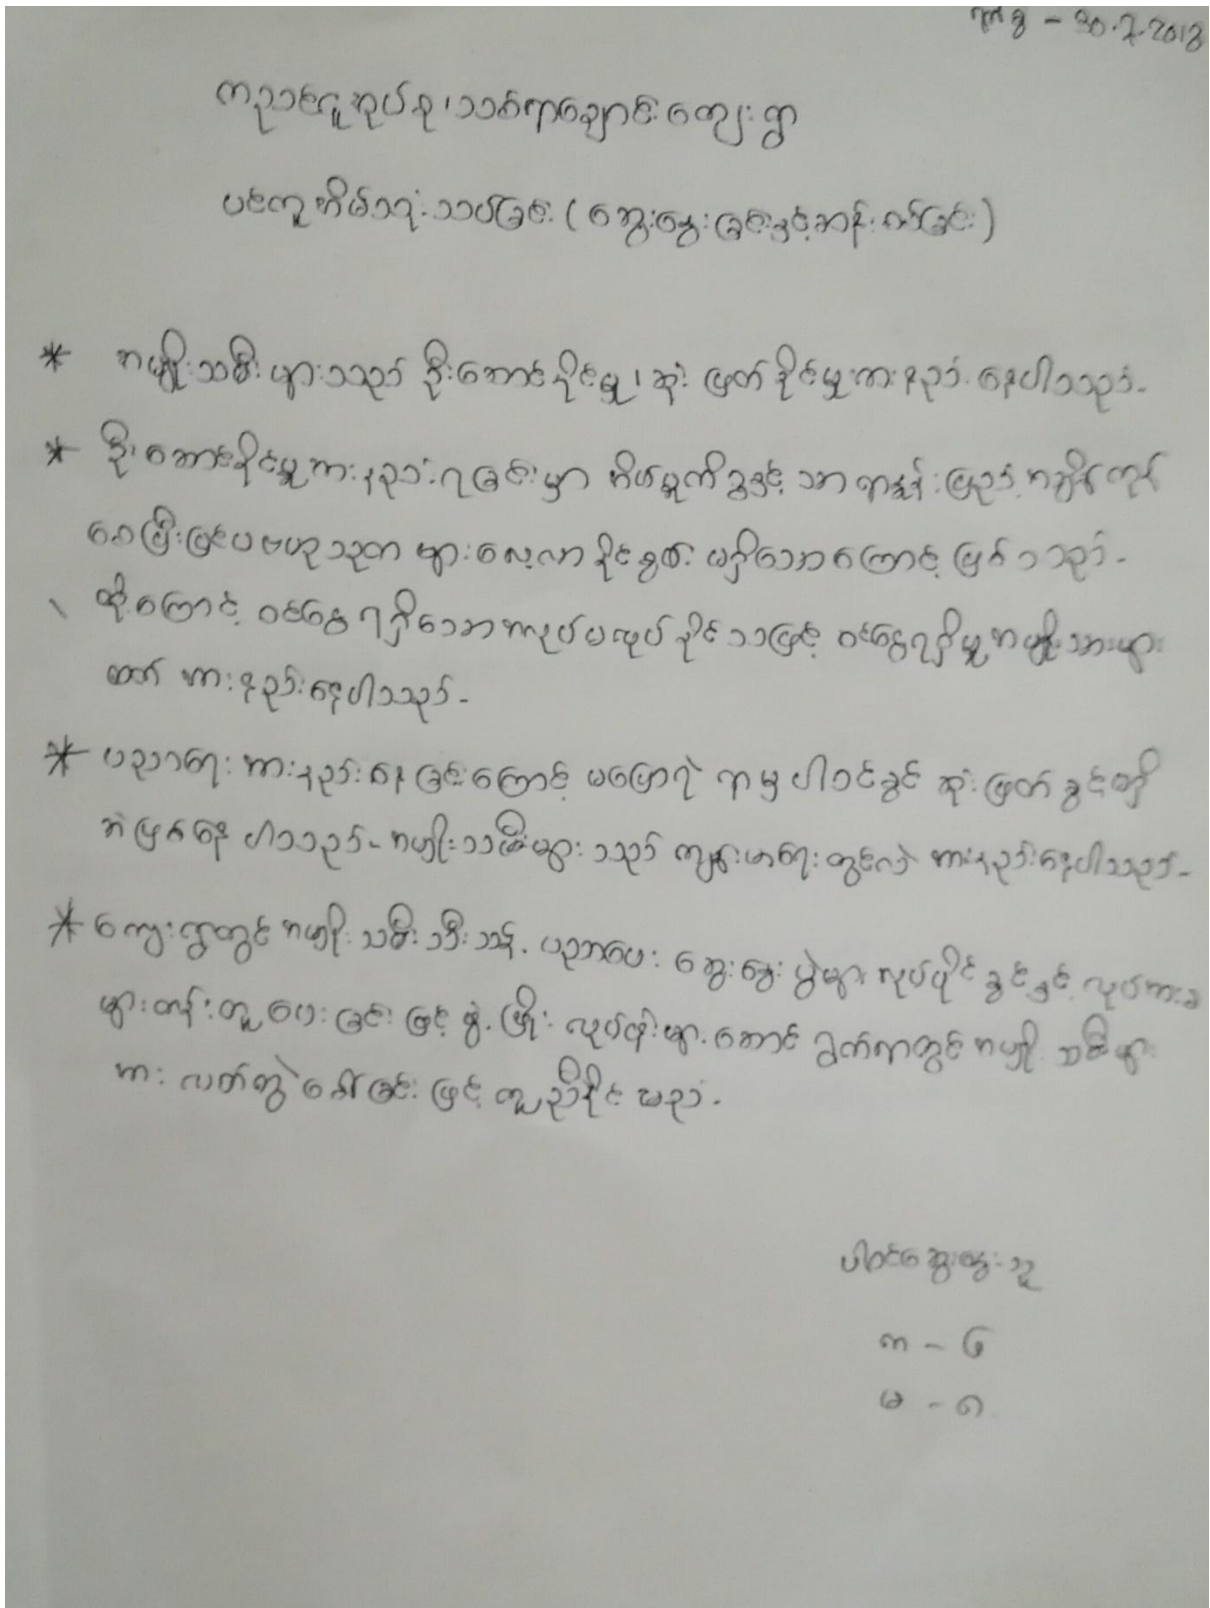 ရက်စွဲ - 30.7.2018
ကညင်ငူအုပ်စု၊ သစ်ရာချောင်းကျေးရွာ
ပင်ကူအိမ်သုံးသပ်ခြင်း (ဆွေးနွေးခြင်းနှင့်ဆန်းစစ်ခြင်း)
* အမျိုးသမီးများသည် ဦးဆောင်နိုင်မှု၊ ဆုံးဖြတ်နိုင်မှုအားနည်းနေပါသည်-
* ဦးဆောင်နိုင်မှုအားနည်းရခြင်းမှာ အိမ်မှုကိစ္စနှင့် သာရာနှုန်းပြည့်အချိန်ကုန်
စေပြီးပြင်ပဗဟုသုတများလေ့လာနိုင်စွမ်းမရှိသောကြောင့်ဖြစ်သည်-
ထို့ကြောင့် ဝင်ငွေရရှိသောအလုပ်မလုပ်နိုင်သဖြင့် ဝင်ငွေရရှိမှုအမျိုးသားများ
ထက် အားနည်းနေပါသည်-
* ပညာရေးအားနည်းနေခြင်းကြောင့် မပြောရဲ ရာမှ ပါဝင်ခွင့် ဆုံးဖြတ်ခွင့်မရှိ
အဲဖြစ်နေပါသည်- အမျိုးသမီးများသည် ကျန်းမာရေးတွင်လဲ အားနည်းနေပါသည်-
* ကျေးရွာတွင်အမျိုးသမီးသီးသန့်ပညာပေးဆွေးနွေးပွဲများလုပ်ပိုင်ခွင့်နှင့် လုပ်အားခ
များတန်းတူပေးခြင်းဖြင့်ဖွံ့ဖြိုးလုပ်ငန်းများဆောင်ရွက်ရာတွင်အမျိုးသမီးများ
အား လက်တွဲခေါ်ခြင်းဖြင့် ကူညီနိုင်မည်-
ပါဝင်ဆွေးနွေးသူ
ကျား - ၆
မ - ၈